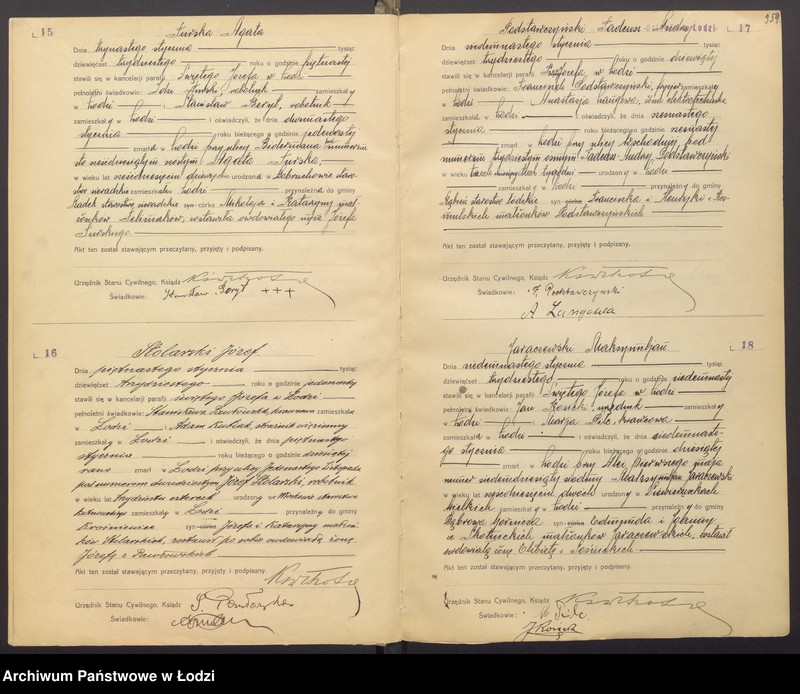 L. 15
Turska Agata
Dnia trzynastego stycznia tysiąc
dziewięćset trzydziestego roku o godzinie piętnastej
stawili się w kancelarji parafji Świętego Józefa w Łodzi
pełnoletni świadkowie: Turski, robotnik zamieszkały
w Łodzi i Stanisław Goryl, robotnik
zamieszkały w Łodzi i oświadczyli, że dnia dwunastego
stycznia roku bieżącego o godzinie jedenastej
zmarła w Łodzi przy ulicy pod numerem
sto siedmdziesiątym szóstym Agata Turska,
w wieku lat siedmdziesięciu dziewięciu urodzona w staro-
stwo sieradzkie zamieszkała w Łodzi przynależna do gminy
starostwo sieradzkie syn-córka Mikołaja i Katarzyny mał-
żonków zostawiła owdowiałego męża Józefa
Turskiego.
Akt ten został stawającym przeczytany, przyjęty i podpisany.
Urzędnik Stanu Cywilnego, Ksiądz
Świadkowie: Stanisław Goryl +++
L. 16
Stolarski Józef.
Dnia piętnastego stycznia tysiąc
dziewięćset trzydziestego roku o godzinie jedenastej
stawili się w kancelarji parafji świętego Józefa w Łodzi
pełnoletni świadkowie: Stanisława zamieszkała
w Łodzi i Adam Kubiak,
zamieszkały w Łodzi i oświadczyli, że dnia piętnastego
stycznia roku bieżącego o godzinie dziesiątej
rano zmarł w Łodzi przy ulicy Jedenastego Listopada
pod numerem dwudziestym Józef Stolarski, robotnik
w wieku lat trzydziestu czterech urodzony w starostwa
kutnowskiego zamieszkały w Łodzi przynależny do gminy
Krośniewice syn-córka Józefa i Katarzyny małżon-
ków Stolarskich, zostawił po sobie owdowiałą żonę
Józefę z Pawłowskich
Akt ten został stawającym przeczytany, przyjęty i podpisany.
Urzędnik Stanu Cywilnego, Ksiądz
Świadkowie:
359
L. 17
Podstawczyński Tadeusz Andrzej
Dnia siedemnastego stycznia tysiąc
dziewięćset trzydziestego roku o godzinie dziewiątej
stawili się w kancelarji parafji Św. Józefa, w Łodzi
pełnoletni świadkowie: Franciszek Podstawczyński, zamieszkały
w Łodzi i Anastazja Langowa, żona elektrotechnika
zamieszkała w Łodzi i oświadczyli, że dnia szesnastego
stycznia roku bieżącego o godzinie szesnastej
zmarł w Łodzi przy ulicy Wschodniej pod
numerem trzydziestym ósmym Tadeusz-Andrzej Podstawczyński
w wieku tygodni urodzony w Łodzi
zamieszkały w Łodzi przynależny do gminy
Rąbień starostwo Łódzkie syn-córka Franciszka i Henryki z Kos-
mulskich małżonków Podstawczyńskich
Akt ten został stawającym przeczytany, przyjęty i podpisany.
Urzędnik Stanu Cywilnego, Ksiądz
Świadkowie: F. Podstawczyński
A. Langowa
L. 18
Jaraczewski Maksymiljan
Dnia siedemnastego stycznia tysiąc
dziewięćset trzydziestego roku o godzinie siedemnastej
stawili się w kancelarji parafji Świętego Józefa w Łodzi
pełnoletni świadkowie: Jan Kosicki, urzędnik zamieszkały
w Łodzi i Marja Pilc, krawcowa
zamieszkała w Łodzi i oświadczyli, że dnia siedemnaste-
go stycznia roku bieżącego o godzinie dziesiątej
zmarł w Łodzi przy Alei Pierwszego Maja
numer siedmdziesiąty siódmy Maksymiljan Jaraczewski
w wieku lat sześćdziesięciu dwóch urodzony w
Wielkich zamieszkały w Łodzi przynależny do gminy
Dąbrowa Górnicza syn-córka Edmunda i
z Skotnickich małżonków Jaraczewskich, zostawił
owdowiałą żonę Elżbietę z
Akt ten został stawającym przeczytany, przyjęty i podpisany.
Urzędnik Stanu Cywilnego, Ksiądz
Świadkowie: M. Pilc
Archiwum Państwowe w Łodzi